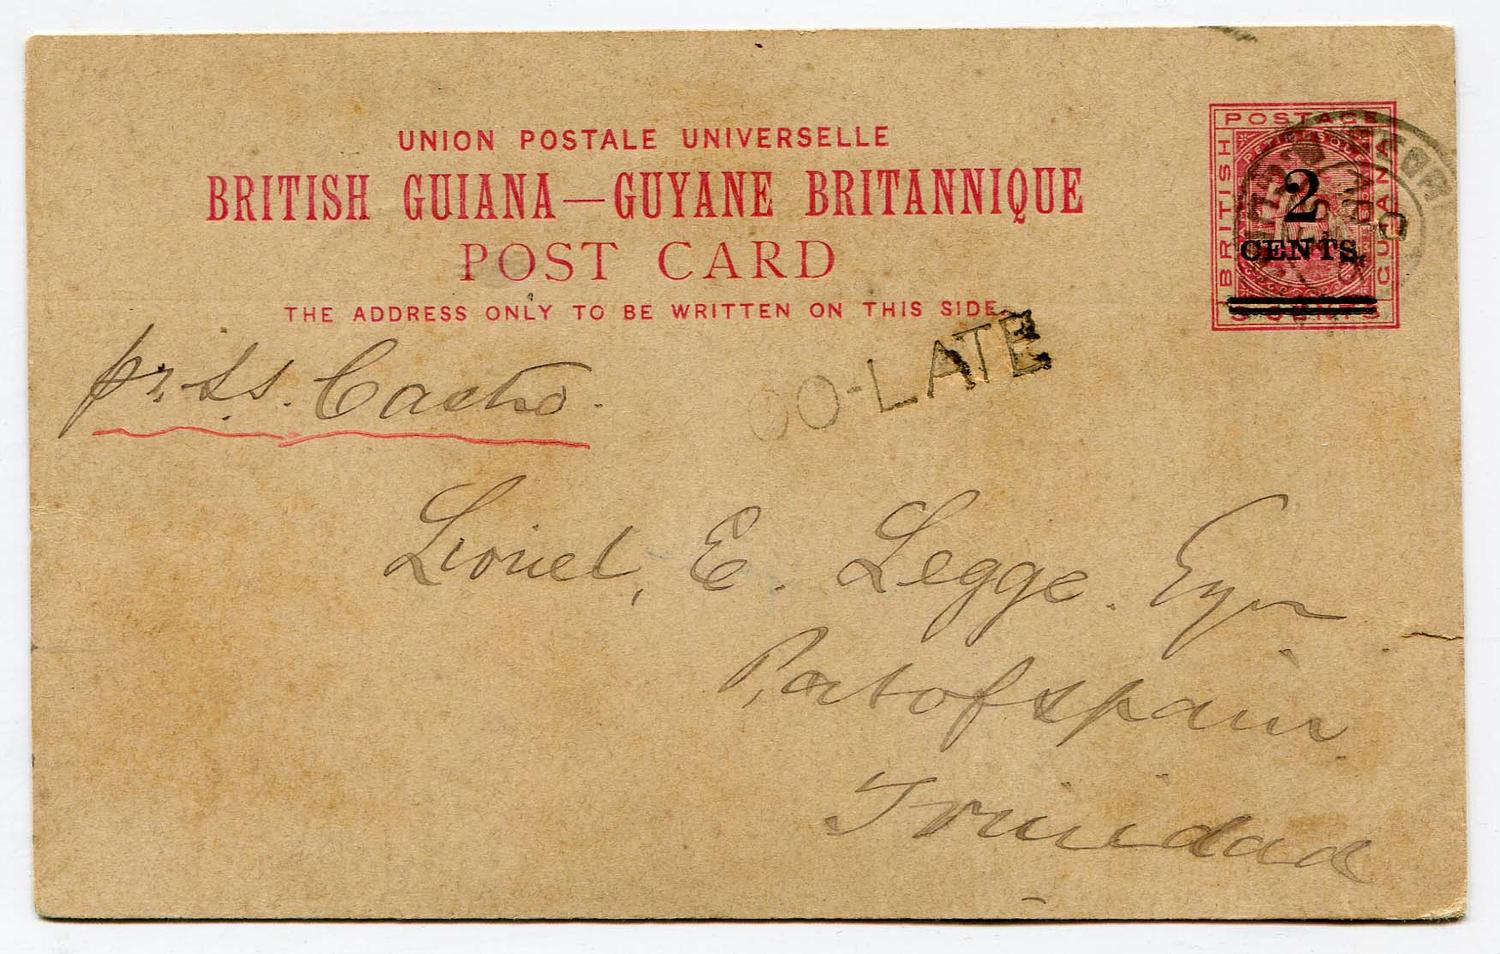 UNION POSTALE UNIVERSELLE
BRITISH GUIANA—GUYANE BRITANNIQUE
POST CARD
THE ADDRESS ONLY TO BE WRITTEN ON THIS SIDE.
POSTAGE
BRITISH
GUIANA
2
CENTS
OO-LATE
pr. s.s. Castro.
Lionel, E. Legge. Esqr
Port of Spain
Trinidad